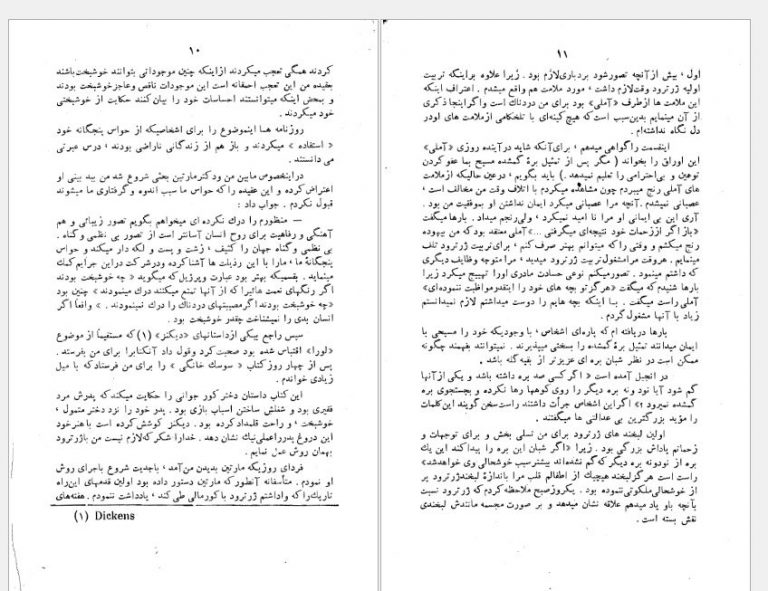 ۱۰
کردند همگی تعجب میکردند ازاینکه چنین موجوداتی بتوانند خوشبخت باشند
بعقیده من این تعجب احمقانه است این موجودات ناقص وعاجز خوشبخت بودند
و بمحض اینکه میتوانستند احساسات خود را بیان کنند حکایت از خوشبختی
خود میکردند .
روزنامه ها اینموضوع را برای اشخاصیکه از حواس پنجگانه خود
« استفاده » میکردند و باز هم از زندگانی ناراضی بودند ، درس عبرتی
می دانستند .
دراینخصوص مابین من ودکتر مارتین بحثی شروع شد من بید بینی او
اعتراض کرده و این عقیده را که حواس ما سبب اندوه و گرفتاری ما میشوند
قبول نکردم . جواب داد :
— منظورم را درك نکرده ای میخواهم بگویم تصور زیبائی و هم
آهنگی و رفاهیت برای روح انسان آسانتر است از تصور بی نظمی وگناه .
بی نظمی وگناه جهان را کثیف ، زشت و پست و لکه دار میکند و حواس
پنجگانهٔ ما ، مارا با این رذیلت ها آشنا کرده ودر شرکت در این جرایم کمك
مینماید . بقسمیکه بهتر بود عبارت ویرژیل که میگوید « چه خوشبخت بودند
اگر رنگهای نعمت هائیرا که از آنها تمتع میکنند درك مینمودند » چنین بود
«چه خوشبخت بودند اگر مصیبتهای دردناك را درك نمینمودند . » واقعاً اگر
انسان بدی را نمیشناخت چقدر خوشبخت بود .
سپس راجع بیکی ازداستانهای «دیکنز» (۱) که مستقیماً از موضوع
«لورا» اقتباس شده بود صحبت کرد وقول داد آنکتابرا برای من بفرستد .
پس از چهار روز کتاب « سوسك خانگی » را برای من فرستاد که با میل
زیادی خواندم .
این کتاب داستان دختر کور جوانی را حکایت میکند که پدرش مرد
فقیری بود و شغلش ساختن اسباب بازی بود . پدر خود را نزد دختر متمول ،
خوشبخت ، و راحت قلمداد کرده بود . دیکنز کوشش کرده است با هنر خود
این دروغ پدر را عملی نیك نشان دهد . خدارا شکر که لازم نیست من باژرترود
بهمان روش عمل نمایم .
فردای روزیکه مارتین بدیدن من آمد ، باجدیت شروع باجرای روش
او نمودم . متأسفانه آنطور که مارتین دستور داده بود اولین قدمهای این راه
تاریك را که واداشتم ژرترود با کورمالی طی کند ، یادداشت ننمودم . هفته‌های
(۱) Dickens
۱۱
اول ، بیش از آنچه تصور شود بردباری لازم بود . زیرا علاوه براینکه تربیت
اولیه ژرترود وقت لازم داشت ، مورد ملامت هم واقع میشدم . اعتراف اینکه
این ملامت ها از طرف «آملی» بود برای من دردناك است واگر اینجا ذکری
از آن مینمایم بدین سبب است که هیچ کینه‌ای با تلخکامی از ملامت های اودر
دل نگاه نداشته‌ام .
اینقسمت را گواهی میدهم ، برای آنکه شاید در آینده روزی «آملی»
این اوراق را بخواند ( مگر پس از تمثیل برهٔ گمشده مسیح بما عفو کردن
توهین و بی‌احترامی را تعلیم نمیدهد .) باید بگویم ، درعین حالیکه ازملامت
های آملی رنج میبردم چون مشاهده میکردم با اتلاف وقت من مخالف است ،
عصبانی نمیشدم . آنچه مرا عصبانی میکرد ایمان نداشتن او بموفقیت من بود .
آری این بی ایمانی او مرا نا امید نمیکرد ، ولی رنجم میداد . بارها میگفت
«باز اگر اززحمات خود نتیجه‌ای میگرفتی ...» آملی معتقد بود که من بیهوده
رنج میکشم و وقتی را که میتوانم بهتر صرف کنم ، برای تربیت ژرترود تلف
مینمایم . هروقت مرا مشغول تربیت ژرترود میدید ، مرا متوجه وظایف دیگری
که داشتم مینمود . تصور میکنم نوعی حسادت مادری اورا تهییج میکرد زیرا
بارها شنیدم که میگفت «هرگز تو بچه های خود را اینقدر مواظبت ننموده‌ای»
آملی راست میگفت . بـا اینکه بچه هایم را دوست میداشتم لازم نمیدانستم
زیاد با آنها مشغول گردم .
بارها دریافته ام که پاره‌ای اشخاص ، با وجودیکه خود را مسیحی با
ایمان میدانند تمثیل برهٔ گمشده را بسختی میپذیرند . نمیتوانند بفهمند چگونه
ممکن است در نظر شبان بره ای عزیزتر از بقیه گله باشد .
در انجیل آمده است « اگر کسی صد بره داشته باشد و یکی از آنها
گم شود آیا نود ونه بره دیگر را روی کوهها رها نکرده و بجستجوی بره
گمشده نمیرود ؟» اگر این اشخاص جرأت داشتند راست سخن گویند این کلمات
را مؤید بزرگترین بی عدالتی ها میگفتند .
اولین لبخند های ژرترود برای من تسلی بخش و برای توجهات و
زحماتم پاداش بزرگی بود . زیرا «اگر شبان این بره را پیدا کند این یك
بره از نودونه بره دیگر که گم نشده‌اند بیشتر سبب خوشحالی وی خواهد شد»
راست است هرگز لبخند هیچیك از اطفالم قلب مرا باندازهٔ لبخند ژرترود پر
از خوشحالی ملکوتی ننموده بود . یکروز صبح ملاحظه کردم که ژرترود نسبت
بآنچه باو یاد میدهم علاقه نشان میدهد و بر صورت مجسمه مانندش لبخندی
نقش بسته است .